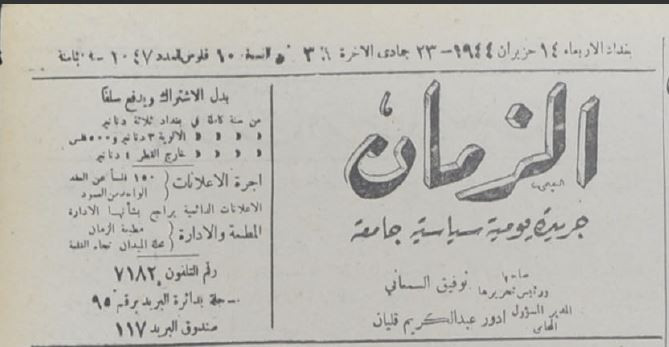 بغداد الاربعاء ١٤ حزيران ١٩٤٤ – ٢٣ جمادى الاخرة النسخة ١٠ فلوس العدد ١٠٤٧
الزمان
جريدة يومية سياسية جامعة
صاحبها
ورئيس تحريرها توفيق السمعاني
المدير المسؤول ادور عبدالكريم قليان
المحامي
بدل الاشتراك ويدفع سلفا
عن سنة كاملة في بغداد ثلاثة دنانير
» » » الالوية ٣ دنانير و٥٠٠ فلس
» » » خارج القطر ٤ دنانير
اجرة الاعلانات ١٥٠ فلساً عن العقد
الواحد من العمود
الاعلانات الدائمية يراجع بشأنها الادارة
المطبعة والادارة مطبعة الزمان
محلة الميدان تجاه القلعة
رقم التلفون ٧١٨٢
مسجلة بدائرة البريد برقم ٩٥
صندوق البريد ١١٧